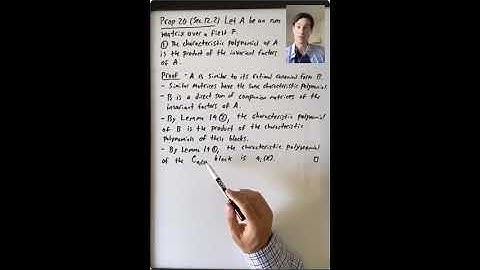 Prop 20 (Sec. 12.2) Let A be an nxn
matrix over a field F.
① The characteristic polynomial of A
is the product of the invariant factors
of A.
Proof - A is similar to its rational canonical form B.
- Similar matrices have the same characteristic polynomial.
- B is a direct sum of companion matrices of the
invariant factors of A.
- By Lemma 19 ②, the characteristic polynomial
of B is the product of the characteristic
polynomials of these blocks.
- By Lemma 19 ①, the characteristic polynomial
of the block is